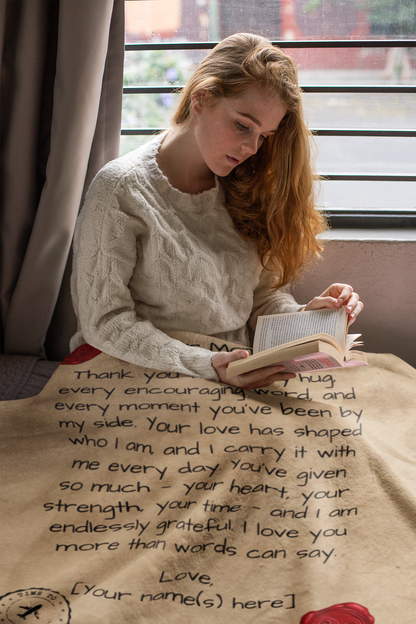 Thank you hug,
every encouraging word, and
every moment you've been by
my side. Your love has shaped
who I am, and I carry it with
me every day. You've given
so much - your heart, your
strength, your time - and I am
endlessly grateful. I love you
more than words can say.
Love,
[Your name(s) here]